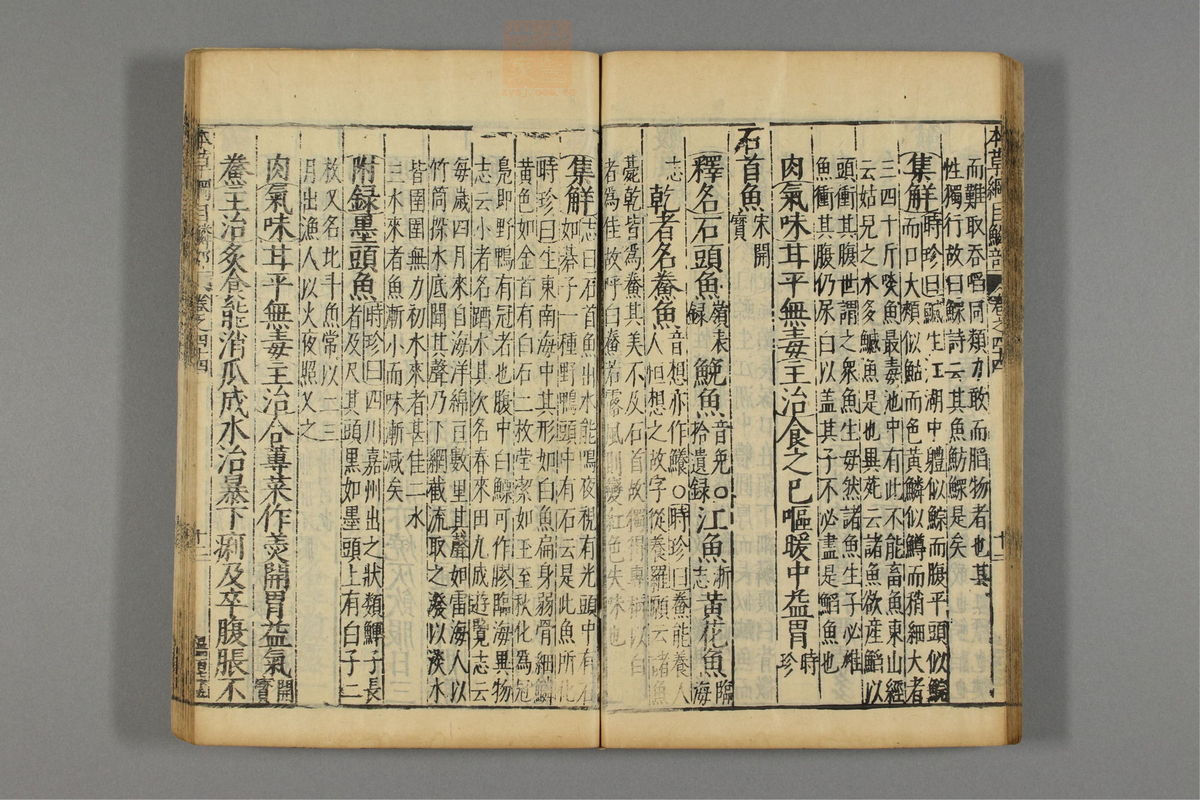 本草綱目鱗部 卷之四十四 十一
而難取吞啗同類力敢而䐄物者也其
性獨行故曰鰥詩云其魚魴鰥是矣
集解時珍曰鱤生江湖中體似鯮而腹平頭似鯇
而口大頰似鮎而色黃鱗似鱒而稍細大者
三四十斤啖魚最毒池中有此不能畜魚東山經
云姑兒之水多鱤魚是也異苑云諸魚欲産鮥以
頭衝其腹世謂之衆魚生母然諸魚生子必雄
魚衝其腹仍尿白以蓋其子不必盡是鮥魚也
肉氣味甘平無毒主治食之已嘔暖中益胃時珍
石首魚宋開寶
釋名石頭魚嶺表錄鮸魚音免○拾遺錄江魚浙志黃花魚臨海
志乾者名鯗魚音想亦作鱶○時珍曰鯗能養人
人恒想之故字從養羅願云諸魚
薧乾皆爲鯗其美不及石首故獨得專稱以白
者爲佳故呼白鯗若露風則變紅色失味也
集解志曰石首魚出水能鳴夜視有光頭中有石
如碁子一種野鴨頭中有石云是此魚所化
時珍曰生東南海中其形如白魚扁身弱骨細鱗
黃色如金首有白石二枚瑩潔如玉至秋化爲冠
鳧即野鴨有冠者也腹中白鰾可作膠臨海異物
志云小者名䠓水其次名春來田九成遊覽志云
每歲四月來自海洋綿亘數里其聲如雷海人以
竹筒探水底聞其聲乃下網截流取之潑以淡水
皆圉圉無力初水來者甚佳二水
三水來者魚漸小而味漸減矣
附録墨頭魚時珍曰四川嘉州出之狀類鯶子長
者及尺其頭黑如墨頭上有白子二
枚又名北斗魚常以二三
月出漁人以火夜照叉之
肉氣味甘平無毒主治合蓴菜作羹開胃益氣開寶
鯗主治炙食能消瓜成水治暴下痢及卒腹脹不
本草綱目 卷之四十四 十二